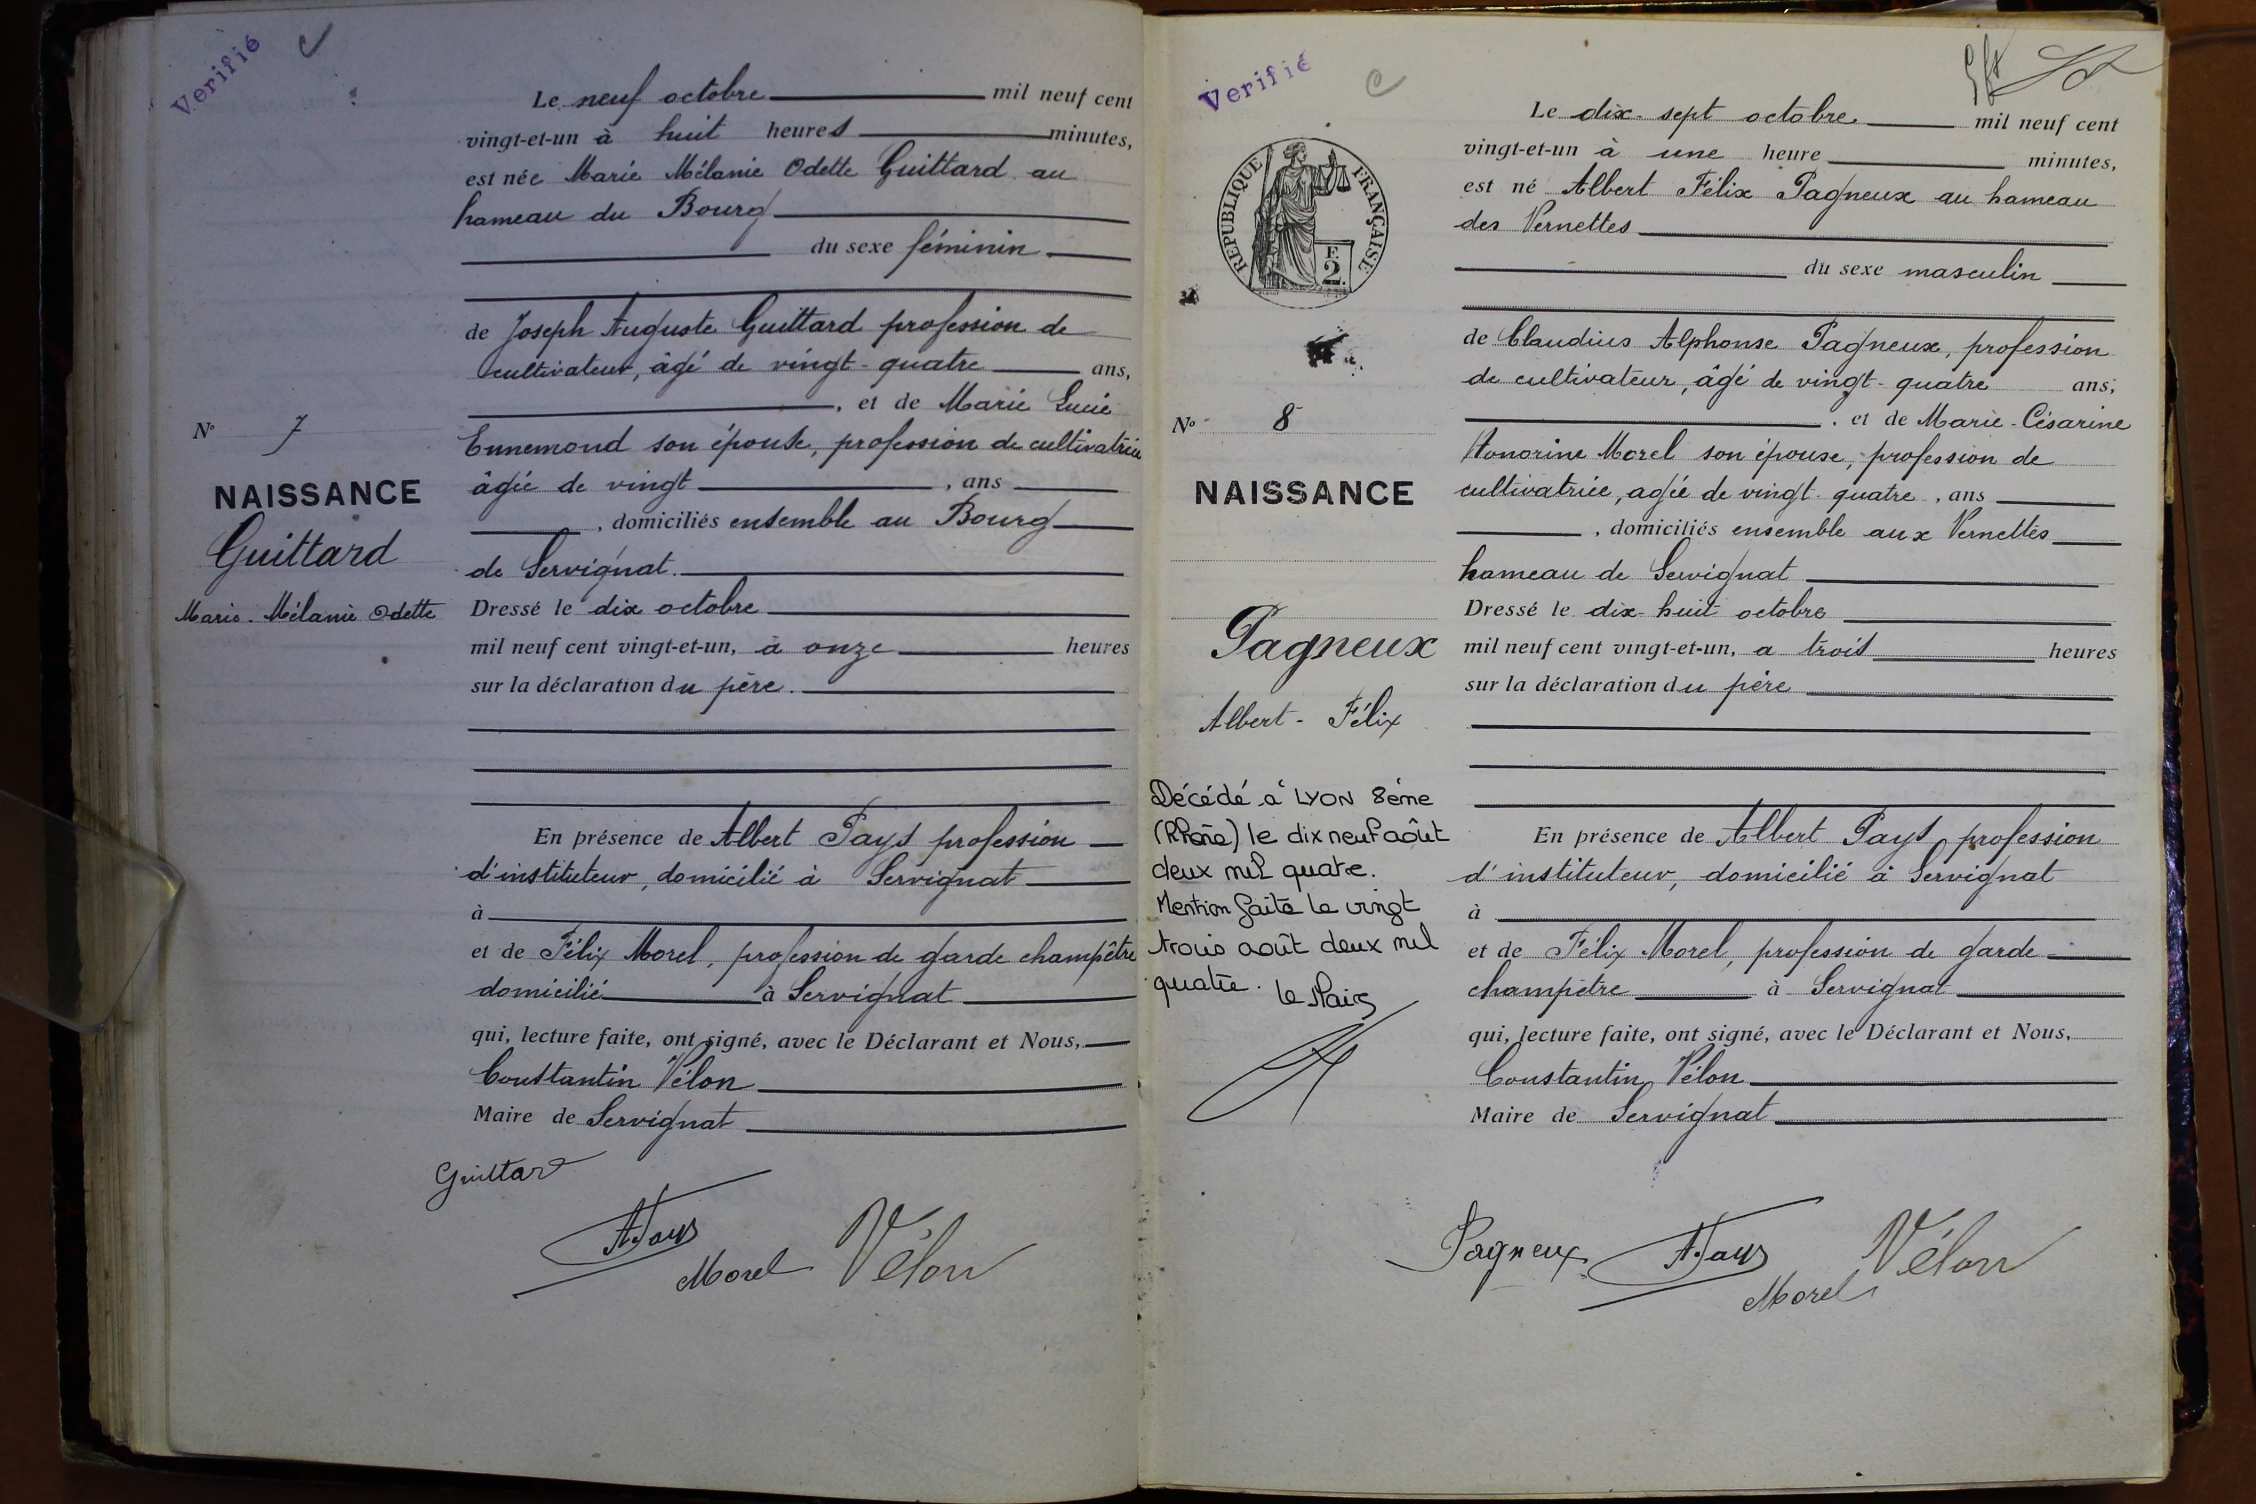 Verifié
C
Le neuf octobre mil neuf cent
vingt-et-un à huit heures minutes,
est née Marie Mélanie Odette Guittard au
hameau du Bourg
du sexe féminin
de Joseph Auguste Guittard profession de
cultivateur, âgé de vingt-quatre ans,
, et de Marie Lucie
Ennemond son épouse, profession de cultivatrice
âgée de vingt , ans
, domiciliés ensemble au Bourg
de Servignat.
Dressé le dix octobre
mil neuf cent vingt-et-un, à onze heures
sur la déclaration du père.
En présence de Albert Pays profession
d'instituteur, domicilié à Servignat
à
et de Félix Morel, profession de garde champêtre
domicilié à Servignat
qui, lecture faite, ont signé, avec le Déclarant et Nous,
Constantin Vélon
Maire de Servignat
N° 7
NAISSANCE
Guittard
Marie-Mélanie Odette
Guittard
A. Pays
Morel Vélon
Verifié
C
REPUBLIQUE FRANÇAISE
F.
2.
Le dix-sept octobre mil neuf cent
vingt-et-un à une heure minutes,
est né Albert Félix Pagneux au hameau
des Vernettes
du sexe masculin
de Claudius Alphonse Pagneux, profession
de cultivateur, âgé de vingt-quatre ans,
, et de Marie-Césarine
Honorine Morel son épouse, profession de
cultivatrice, agée de vingt-quatre , ans
, domiciliés ensemble aux Vernettes
hameau de Servignat
Dressé le dix-huit octobre
mil neuf cent vingt-et-un, a trois heures
sur la déclaration du père
En présence de Albert Pays, profession
d'instituteur, domicilié à Servignat
à
et de Félix Morel, profession de garde
champêtre à Servignat
qui, lecture faite, ont signé, avec le Déclarant et Nous,
Constantin Vélon
Maire de Servignat
N° 8
NAISSANCE
Pagneux
Albert-Félix
Décédé à LYON 8ème
(Rhône) le dix neuf août
deux mil quatre.
Mention faite le vingt
trois août deux mil
quatre. Le Maire
Pagneux A. Pays Vélon
Morel